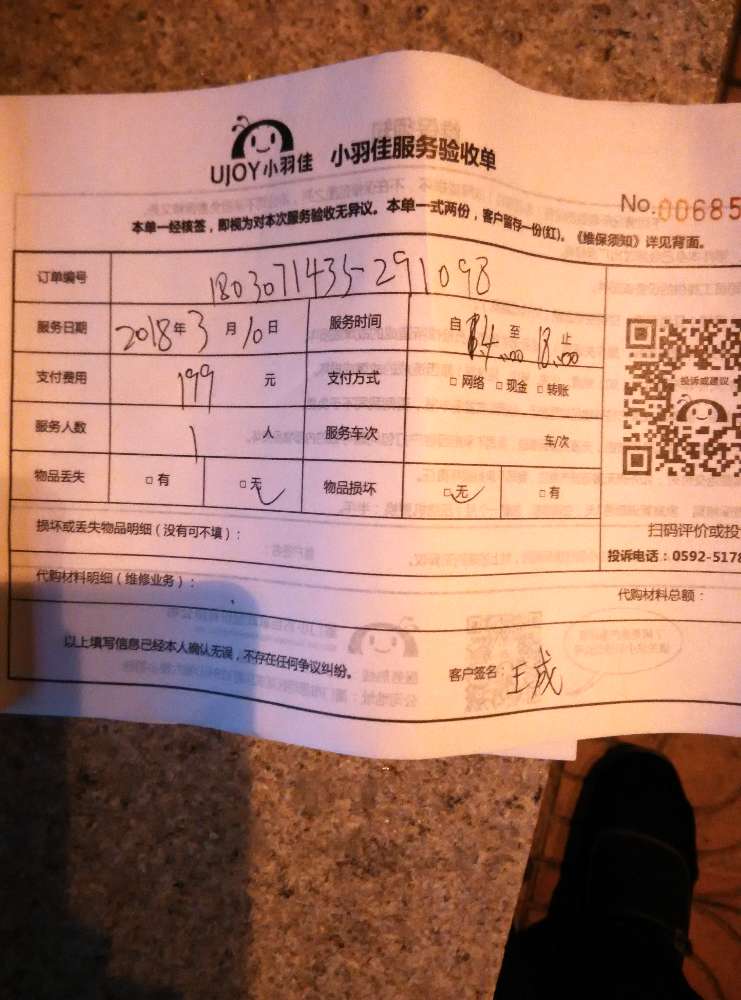 UJOY小羽佳 小羽佳服务验收单
No.00685
本单一经核签，即视为对本次服务验收无异议。本单一式两份，客户留存一份(红)。《维保须知》详见背面。
订单编号 1803071435-291098
服务日期 2018年3月10日 服务时间 自14:00至18:00止
支付费用 199元 支付方式 □网络 □现金 □转账
投诉或建议
服务人数 1人 服务车次 车/次
物品丢失 □有 □无 物品损坏 □无 □有
损坏或丢失物品明细（没有可不填）：
扫码评价或投
投诉电话：0592-5178
代购材料明细（维修业务）：
代购材料总额：
以上填写信息已经本人确认无误，不存在任何争议纠纷。
客户签名：王成